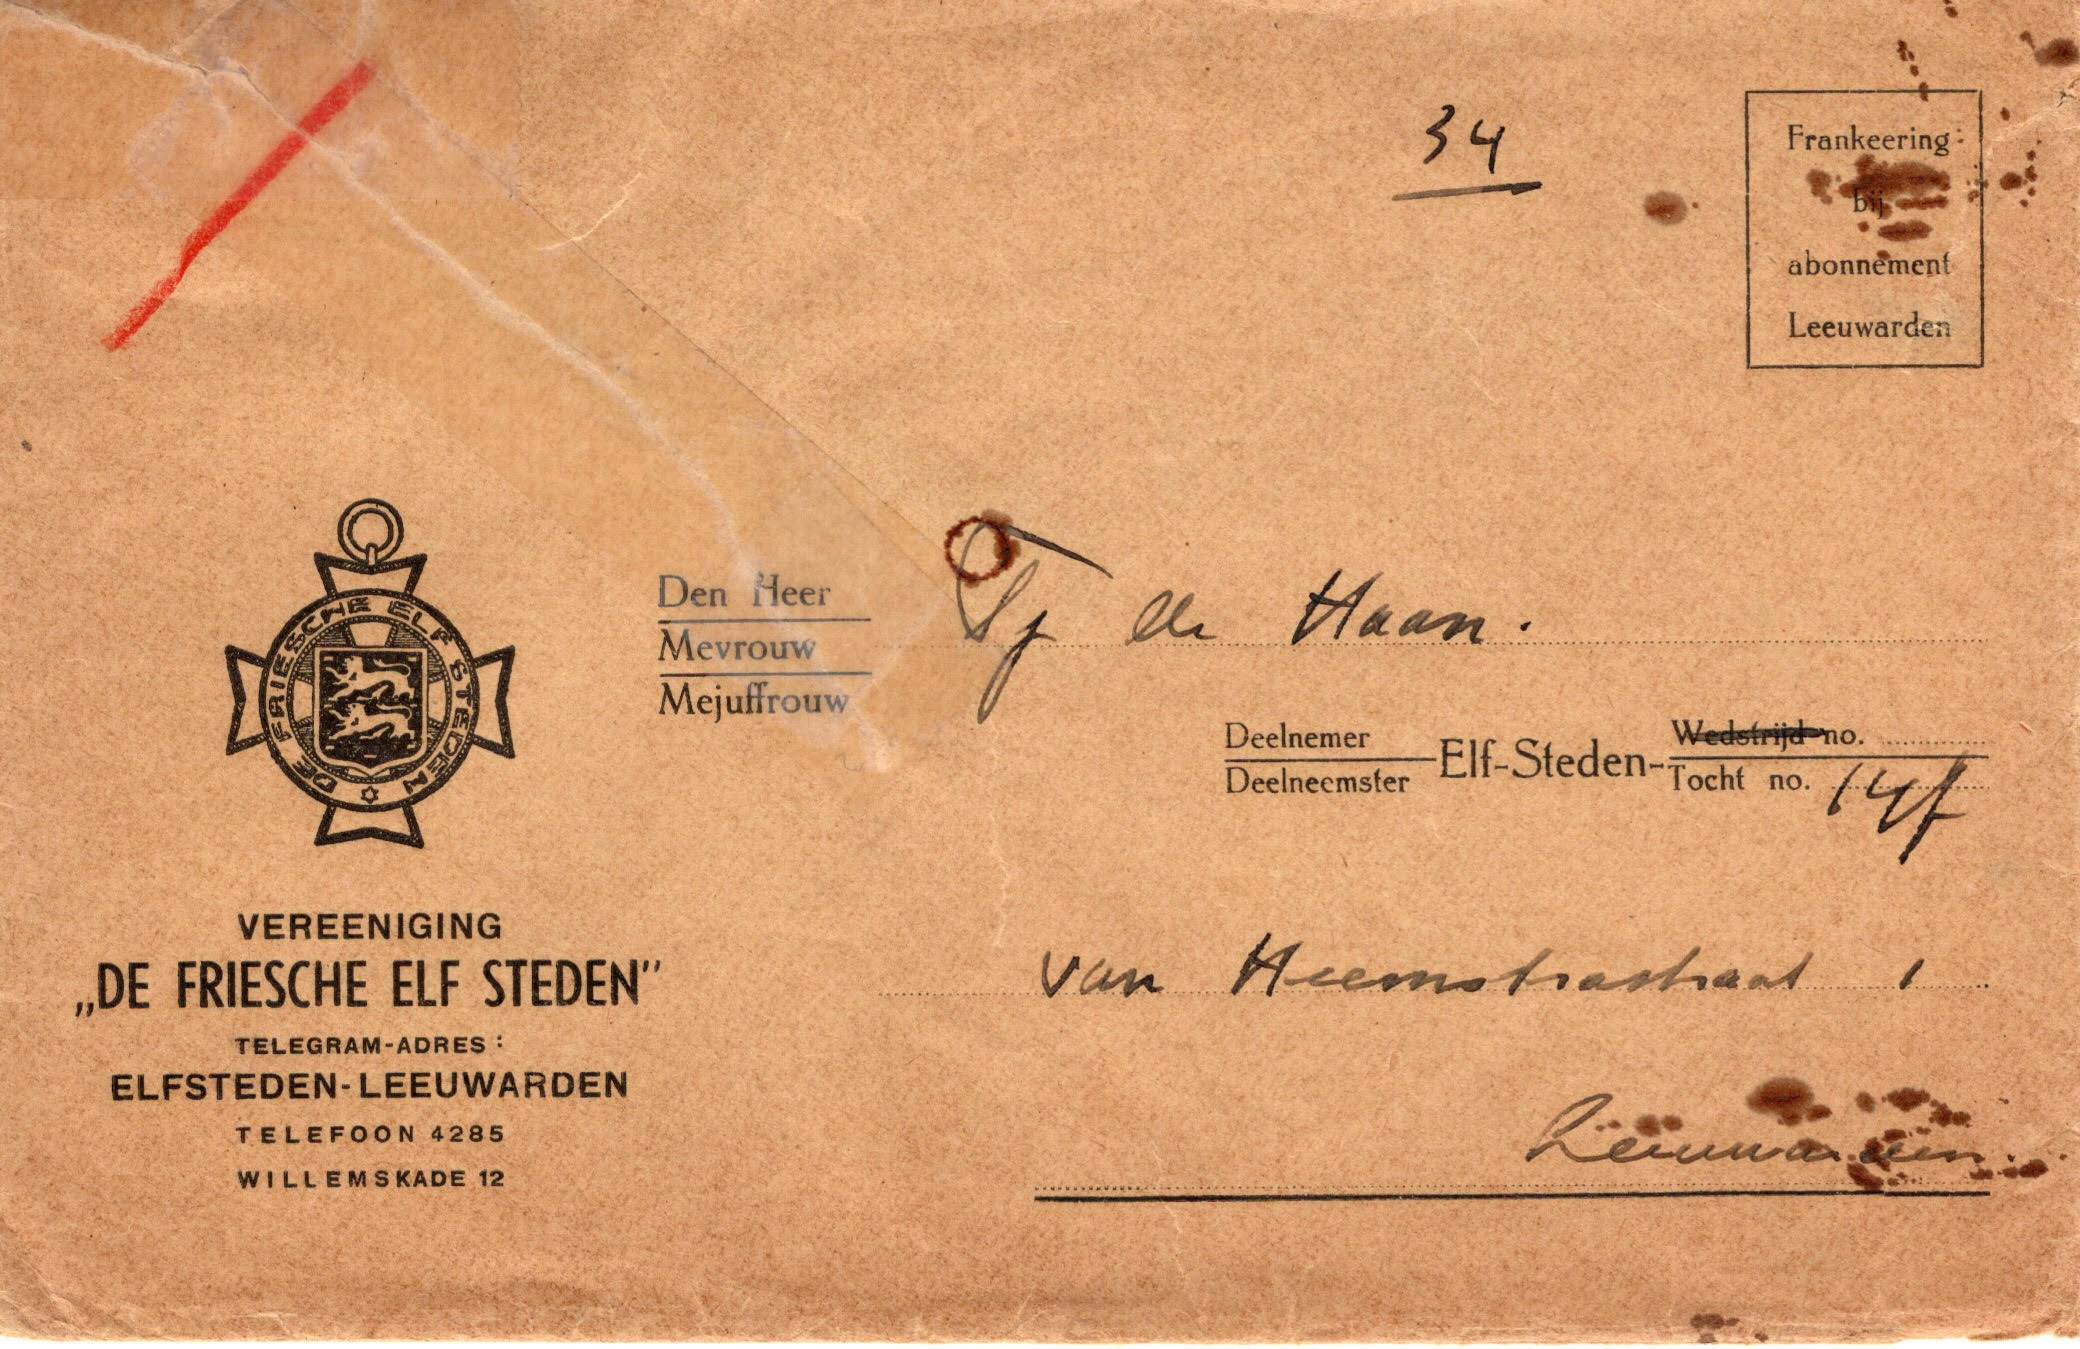 34
Frankeering
bij
abonnement
Leeuwarden
DE FRIESCHE ELF STEDEN
Den Heer
Mevrouw
Mejuffrouw
Tj de Haan.
Deelnemer
Deelneemster
Elf-Steden-
Wedstrijd no.
Tocht no.
VEREENIGING
„DE FRIESCHE ELF STEDEN"
TELEGRAM-ADRES :
ELFSTEDEN-LEEUWARDEN
TELEFOON 4285
WILLEMSKADE 12
van Heemstrastraat 1
Leeuwarden.